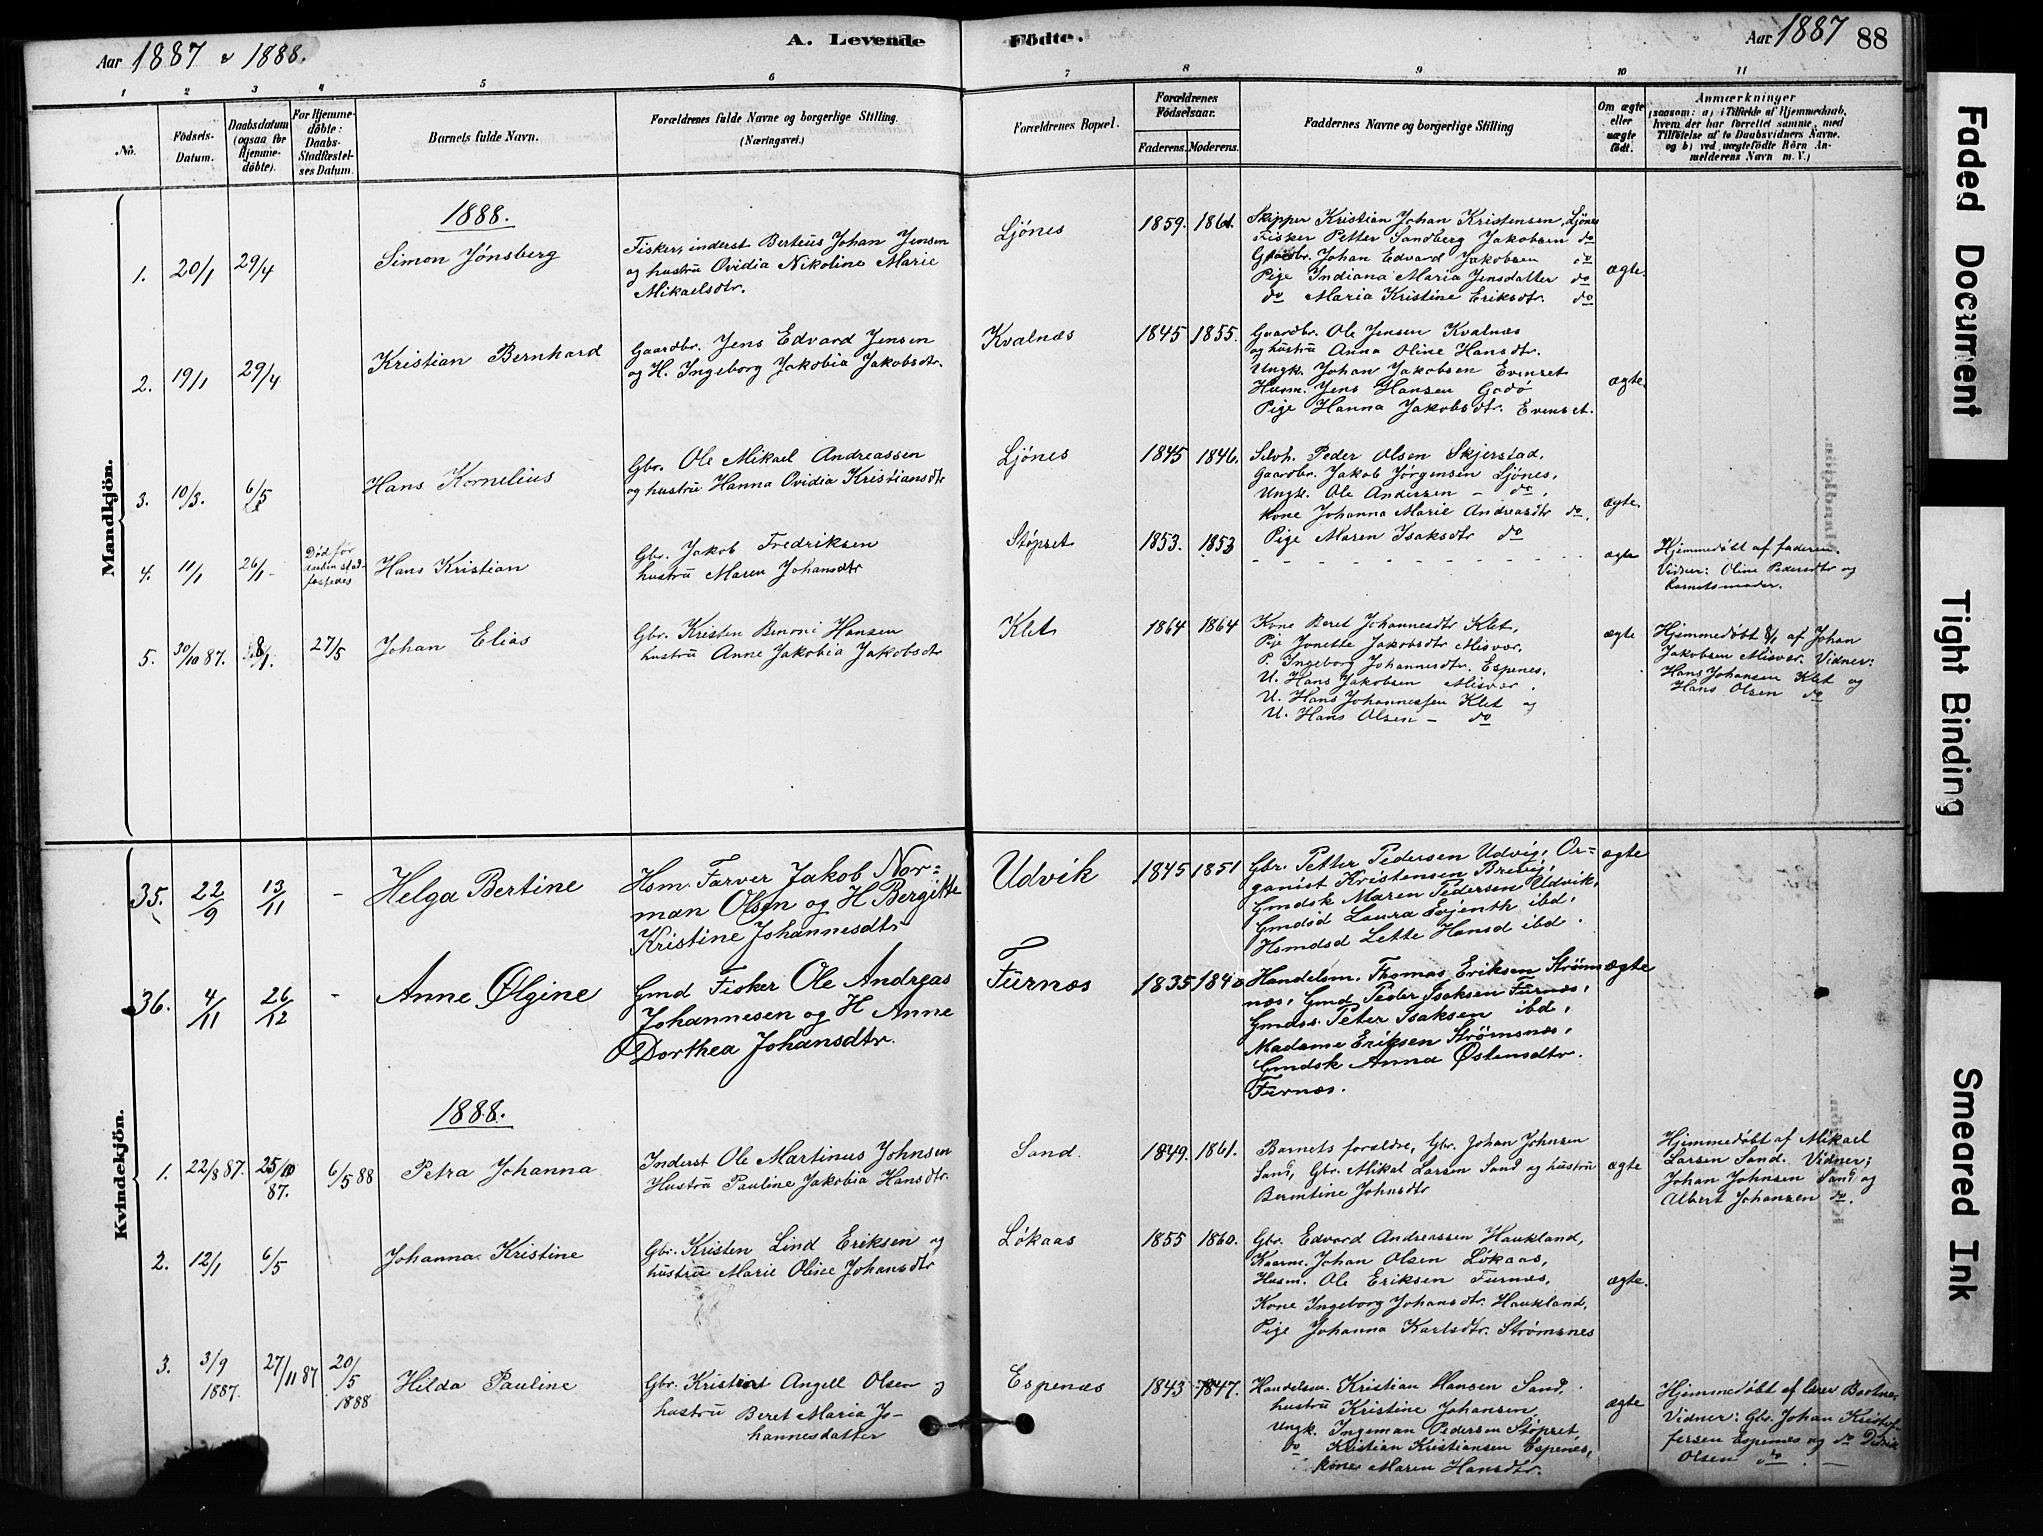 Aar 1887 & 1888.
A. Levende Födte.
Aar 1887 88
1 2 3 4 5 6 7 8 9 10 11
No.
Födsels-Datum.
Daabsdatum (ogsaa for Hjemmedöbte).
For Hjemmedöbte: Daabs-Stadfæstelses Datum.
Barnets fulde Navn.
Forældrenes fulde Navne og borgerlige Stilling. (Næringsvei.)
Forældrenes Bopæl.
Forældrenes Födselsaar.
Faderens. Moderens.
Faddernes Navne og borgerlige Stilling
Om ægte eller uægte födt.
Anmærkninger
(saasom: a) i Tilfælde af Hjemmedaab, hvem der har forrettet samme, med Tilföielse af to Daabsvidners Navne, og b) ved uægtefödte Börn Anmelderens Navn m. V.)
Mandkjön.
1888.
1. 20/1 29/4
Simon Jönsberg
Fisker, inderst Berteus Johan Jensen
og hustru Ovidia Nikoline Marie
Mikaelsdtr.
Ljönes 1859. 1861.
Skipper Kristian Johan Kristensen, Ljönes
Fisker Petter Sandberg Jakobsen do
Gaardbr. Johan Edvard Jakobsen do
Pige Indiana Maria Jensdatter do
do Maria Kristine Eriksdtr. do
ægte
2. 19/1 29/4
Kristian Bernhard
Gaardbr. Jens Edvard Jensen
og H. Ingeborg Jakobia Jakobsdtr.
Kvalnæs 1845 1855.
Gaardbr. Ole Jensen Kvalnæs
og hustru Anna Oline Hansdtr.
Ungk. Johan Jakobsen Evenset
Husm. Jens Hansen Godö
Pige Hanna Jakobsdtr. Evenset.
ægte.
3. 10/3. 6/5
Hans Kornelius
Gbr. Ole Mikael Andreassen
og hustru Hanna Ovidia Kristiansdtr
Ljönes 1845 1846.
Selvh. Peder Olsen Skjerstad,
Gaardbr. Jakob Jörgensen Ljönes,
Ungk. Ole Andersen - do,
Kone Johanna Marie Andreasdtr do,
Pige Maren Isaksdtr do
ægte.
4. 11/1 26/1-
Död för daaben stadfæstedes
Hans Kristian
Gbr. Jakob Fredriksen
hustru Maren Johansdtr
Støpset 1853. 1853
ægte
Hjemmedöbt af faderen.
Vidner: Oline Pedersdtr og
barnets moder.
5. 30/10 87. 8/1. 27/5
Johan Elias
Gbr. Kristen Benoni Hansen
hustru Anne Jakobia Jakobsdtr
Klet 1864 1864
Kone Beret Johannesdtr Klet,
Pige Jonette Jakobsdtr Misvær,
P. Ingeborg Johannesdtr. Espenes,
U. Hans Jakobsen Misvær,
U. Hans Johannessen Klet og
U. Hans Olsen - do
ægte
Hjemmedöbt 8/1 af Johan
Jakobsen Misvær. Vidner:
Hans Johansen Klet og
Hans Olsen do
Kvindekjön.
35. 22/9 13/11 -
Helga Bertine
Hsm. Farver Jakob Nor-
man Olsen og H Bergitte
Kristine Johannesdtr
Udvik 1845 1851
Gbr. Petter Pedersen Udvig, Or-
ganist Kristensen Brevig,
Gmdsk Maren Pedersen Udvik,
Gmdsd Laura Evjenth ibd,
Hsmdsd Lette Hansd ibd.
ægte
36. 4/11 26/12 -
Anne Ølgine
Gmd Fisker Ole Andreas
Johannesen og H Anne
Dorthea Johansdtr.
Furnæs 1835 1840
Handelsm. Thomas Eriksen Strøms-
næs, Gmd Peder Isaksen Furnæs,
Gmdss. Peter Isaksen ibd,
Madame Eriksen Strømsnæs,
Gmdsk Anna Østensdtr
Furnæs.
ægte
1888.
1. 22/8 87. 25/10 87. 6/5 88
Petra Johanna
Inderst Ole Martinus Johnsen
Hustru Pauline Jakobia Hansdtr.
Sand. 1849. 1861.
Barnets forældre, Gbr. Johan Johnsen
Sand, Gbr. Mikal Larsen Sand og hustru
Berentine Johnsdtr
ægte
Hjemmedöbt af Mikael
Larsen Sand. Vidner;
Johan Johnsen Sand og
Albert Johansen do.
2. 12/1 6/5
Johanna Kristine
Gbr. Kristen Lind Eriksen og
hustru Marie Oline Johansdtr
Løkaas 1855 1860.
Gbr. Edvard Andreassen Haukland,
Kaarm. Johan Olsen Løkaas,
Husm. Ole Eriksen Furnæs,
Kone Ingeborg Johansdtr. Haukland,
Pige Johanna Karlsdtr. Strømsnes
ægte.
3. 3/9 1887. 27/11 87 20/5 1888
Hilda Pauline
Gbr. Kristian Angell Olsen og
hustru Beret Maria Jo-
hannesdatter
Espenæs 1843 1847.
Handelsm. Kristian Hansen Sand,
hustru Kristine Johansen,
Ungk. Ingeman Pedersen Støpset,
do Kristian Kristiansen Espenes,
kone Maren Hansdtr.
ægte
Hjemmedöbt af lærer Bootnæs
Vidner: Gbr. Johan Kristof-
fersen Espenes og do Didrik
Olsen do. -
Faded Document
Tight Binding
Smeared Ink